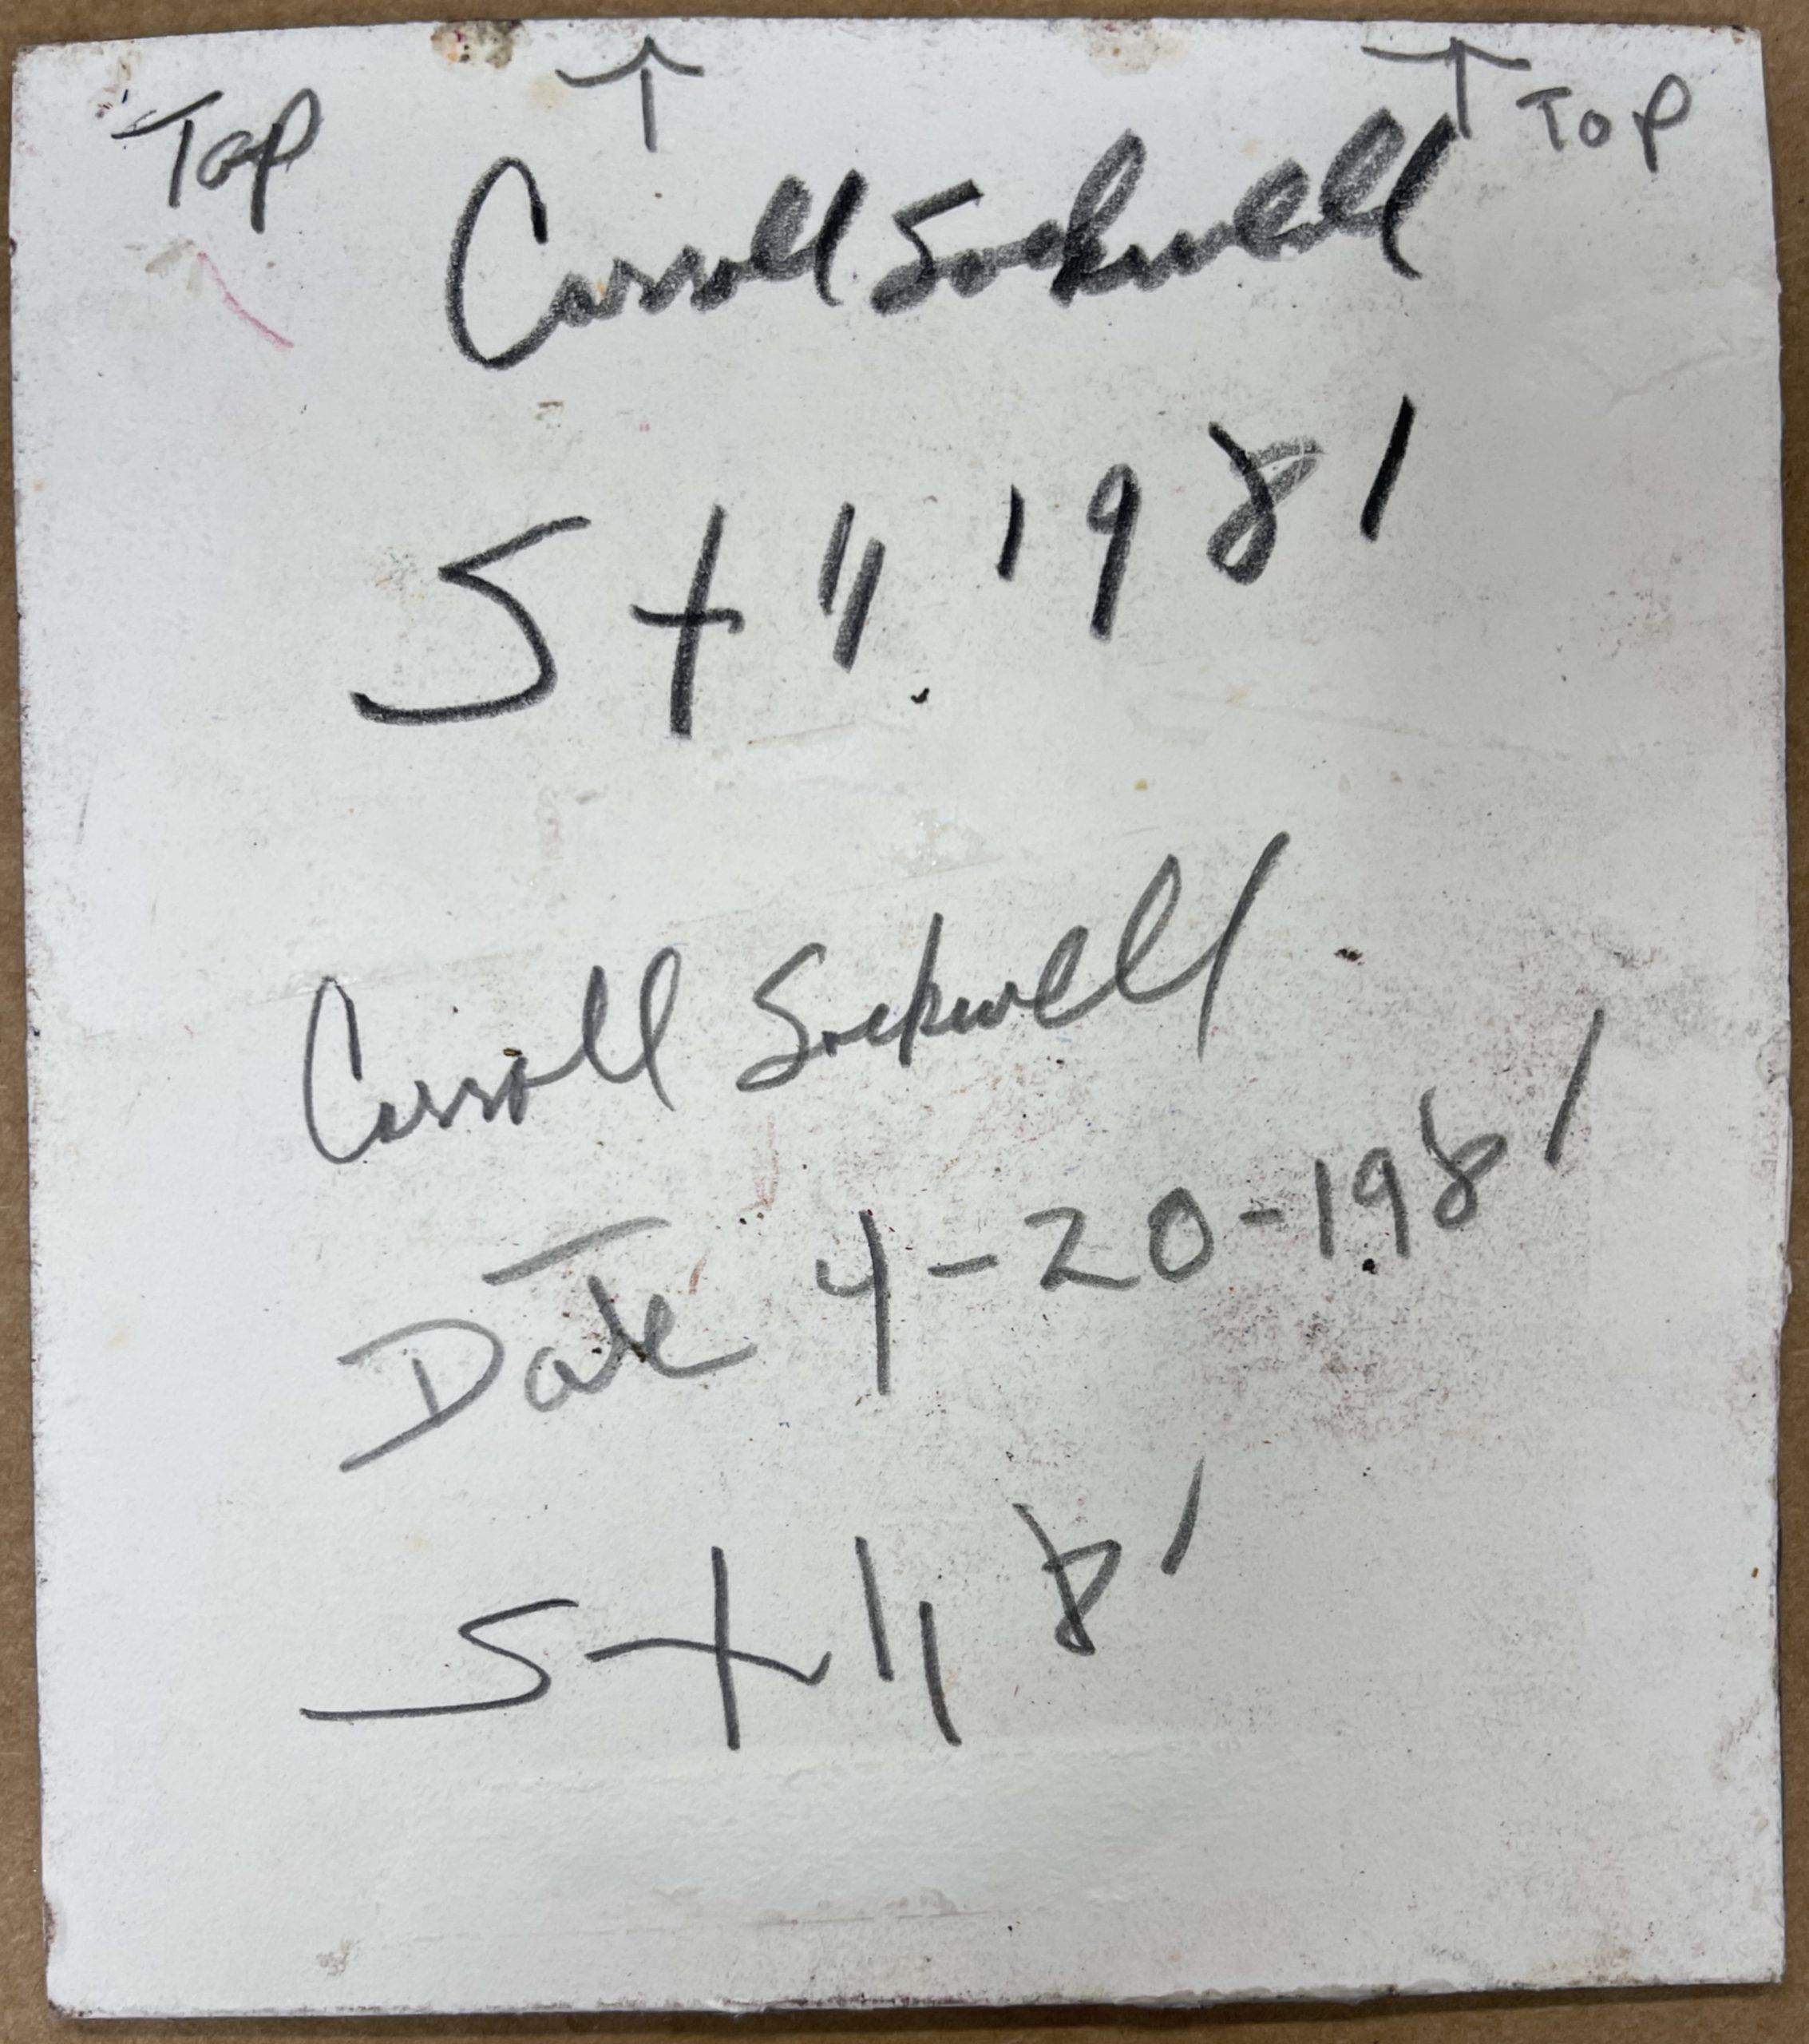 Top ↑ ↑ Top
Carroll Sockwell
St 11 1981
Carroll Sockwell
Date 4-20-1981
St 11 81